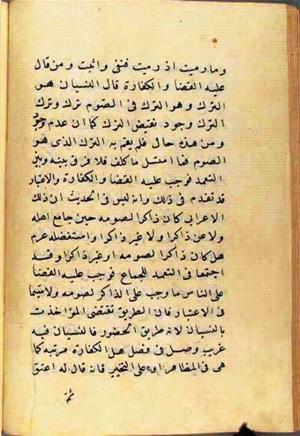 وما رميت اذ رميت فنفى واثبت ومن قال
عليه القضا والكفارة قال النسيان هو
الترك وهو الترك فى الصوم ترك وترك
الترك وجود نقيض الترك كما ان عدم
ومن هذه حال فلم يقم به الترك الذى هو
الصوم فما امتثل ما كلف فلا فرق بينه وبين
المتعمد فوجب عليه القضا والكفارة والاعتبار
قد تقدم فى ذلك وانه ليس فى الحديث ان ذلك
الاعرابى كان ذاكرا لصومه حين جامع اهله
ولا عن ذاكرا ولا غير ذاكرا ولا استفصله عم
هل كان ذاكرا لصومه او غير ذاكر وقد
اجتمعا فى التعمد للجماع فوجب عليه القضا
على الناس ما وجب على الذاكر لصومه ولا سيما
فى الاعتبار فان الطريق تقتضى المؤاخذت
بالنسيان لانه طريق الحضور فالنسيان فيه
غريب وصل فى فصل هل الكفارة مرتبة كما
هى فى المظاهر او على التخيير فانه قال له اعتق
ثم